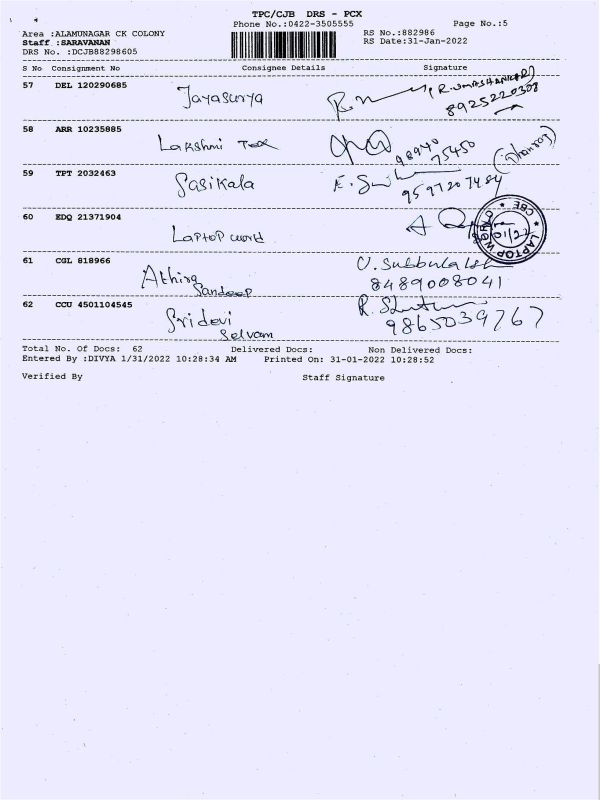 TPC/CJB DRS - PCX
Phone No.:0422-3505555 Page No.:5
Area :ALAMUNAGAR CK COLONY RS No.:882986
Staff :SARAVANAN RS Date:31-Jan-2022
DRS No. :DCJB88298605
S No Consignment No Consignee Details Signature
57 DEL 120290685 Jayasurya (R.UMASHANKAR)
8925220308
58 ARR 10235885 Lakshmi Tex 98940
75450
59 TPT 2032463 Sasikala 9597207484
60 EDQ 21371904 Laptop world LAPTOP WORLD * CBE *
61 CGL 818966 Athira
Sandeep 8489008041
62 CCU 4501104545 Sridevi
Selvam 9865039767
Total No. Of Docs: 62 Delivered Docs: Non Delivered Docs:
Entered By :DIVYA 1/31/2022 10:28:34 AM Printed On: 31-01-2022 10:28:52
Verified By Staff Signature